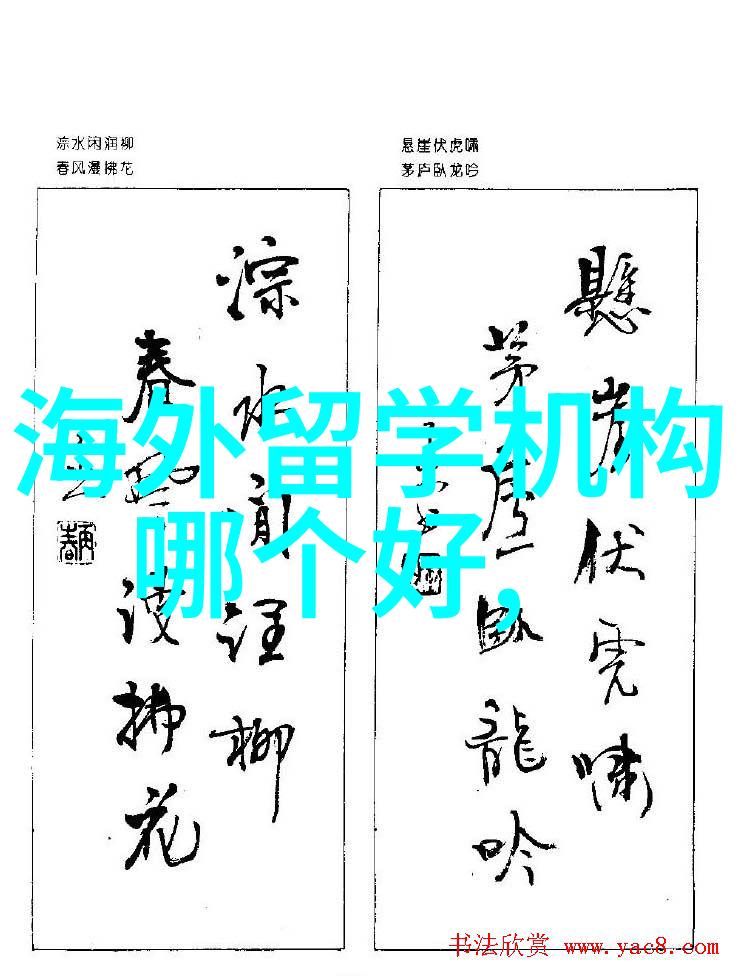 淙水闲润柳
春风漫拂花
悬崖伏虎啸
茅庐卧龙吟
海外留学机构
哪个好,
淙水闲润柳
春风漫拂花
懸崖伏虎嘯
茅廬臥龍吟
书法欣赏 www.yac8.com